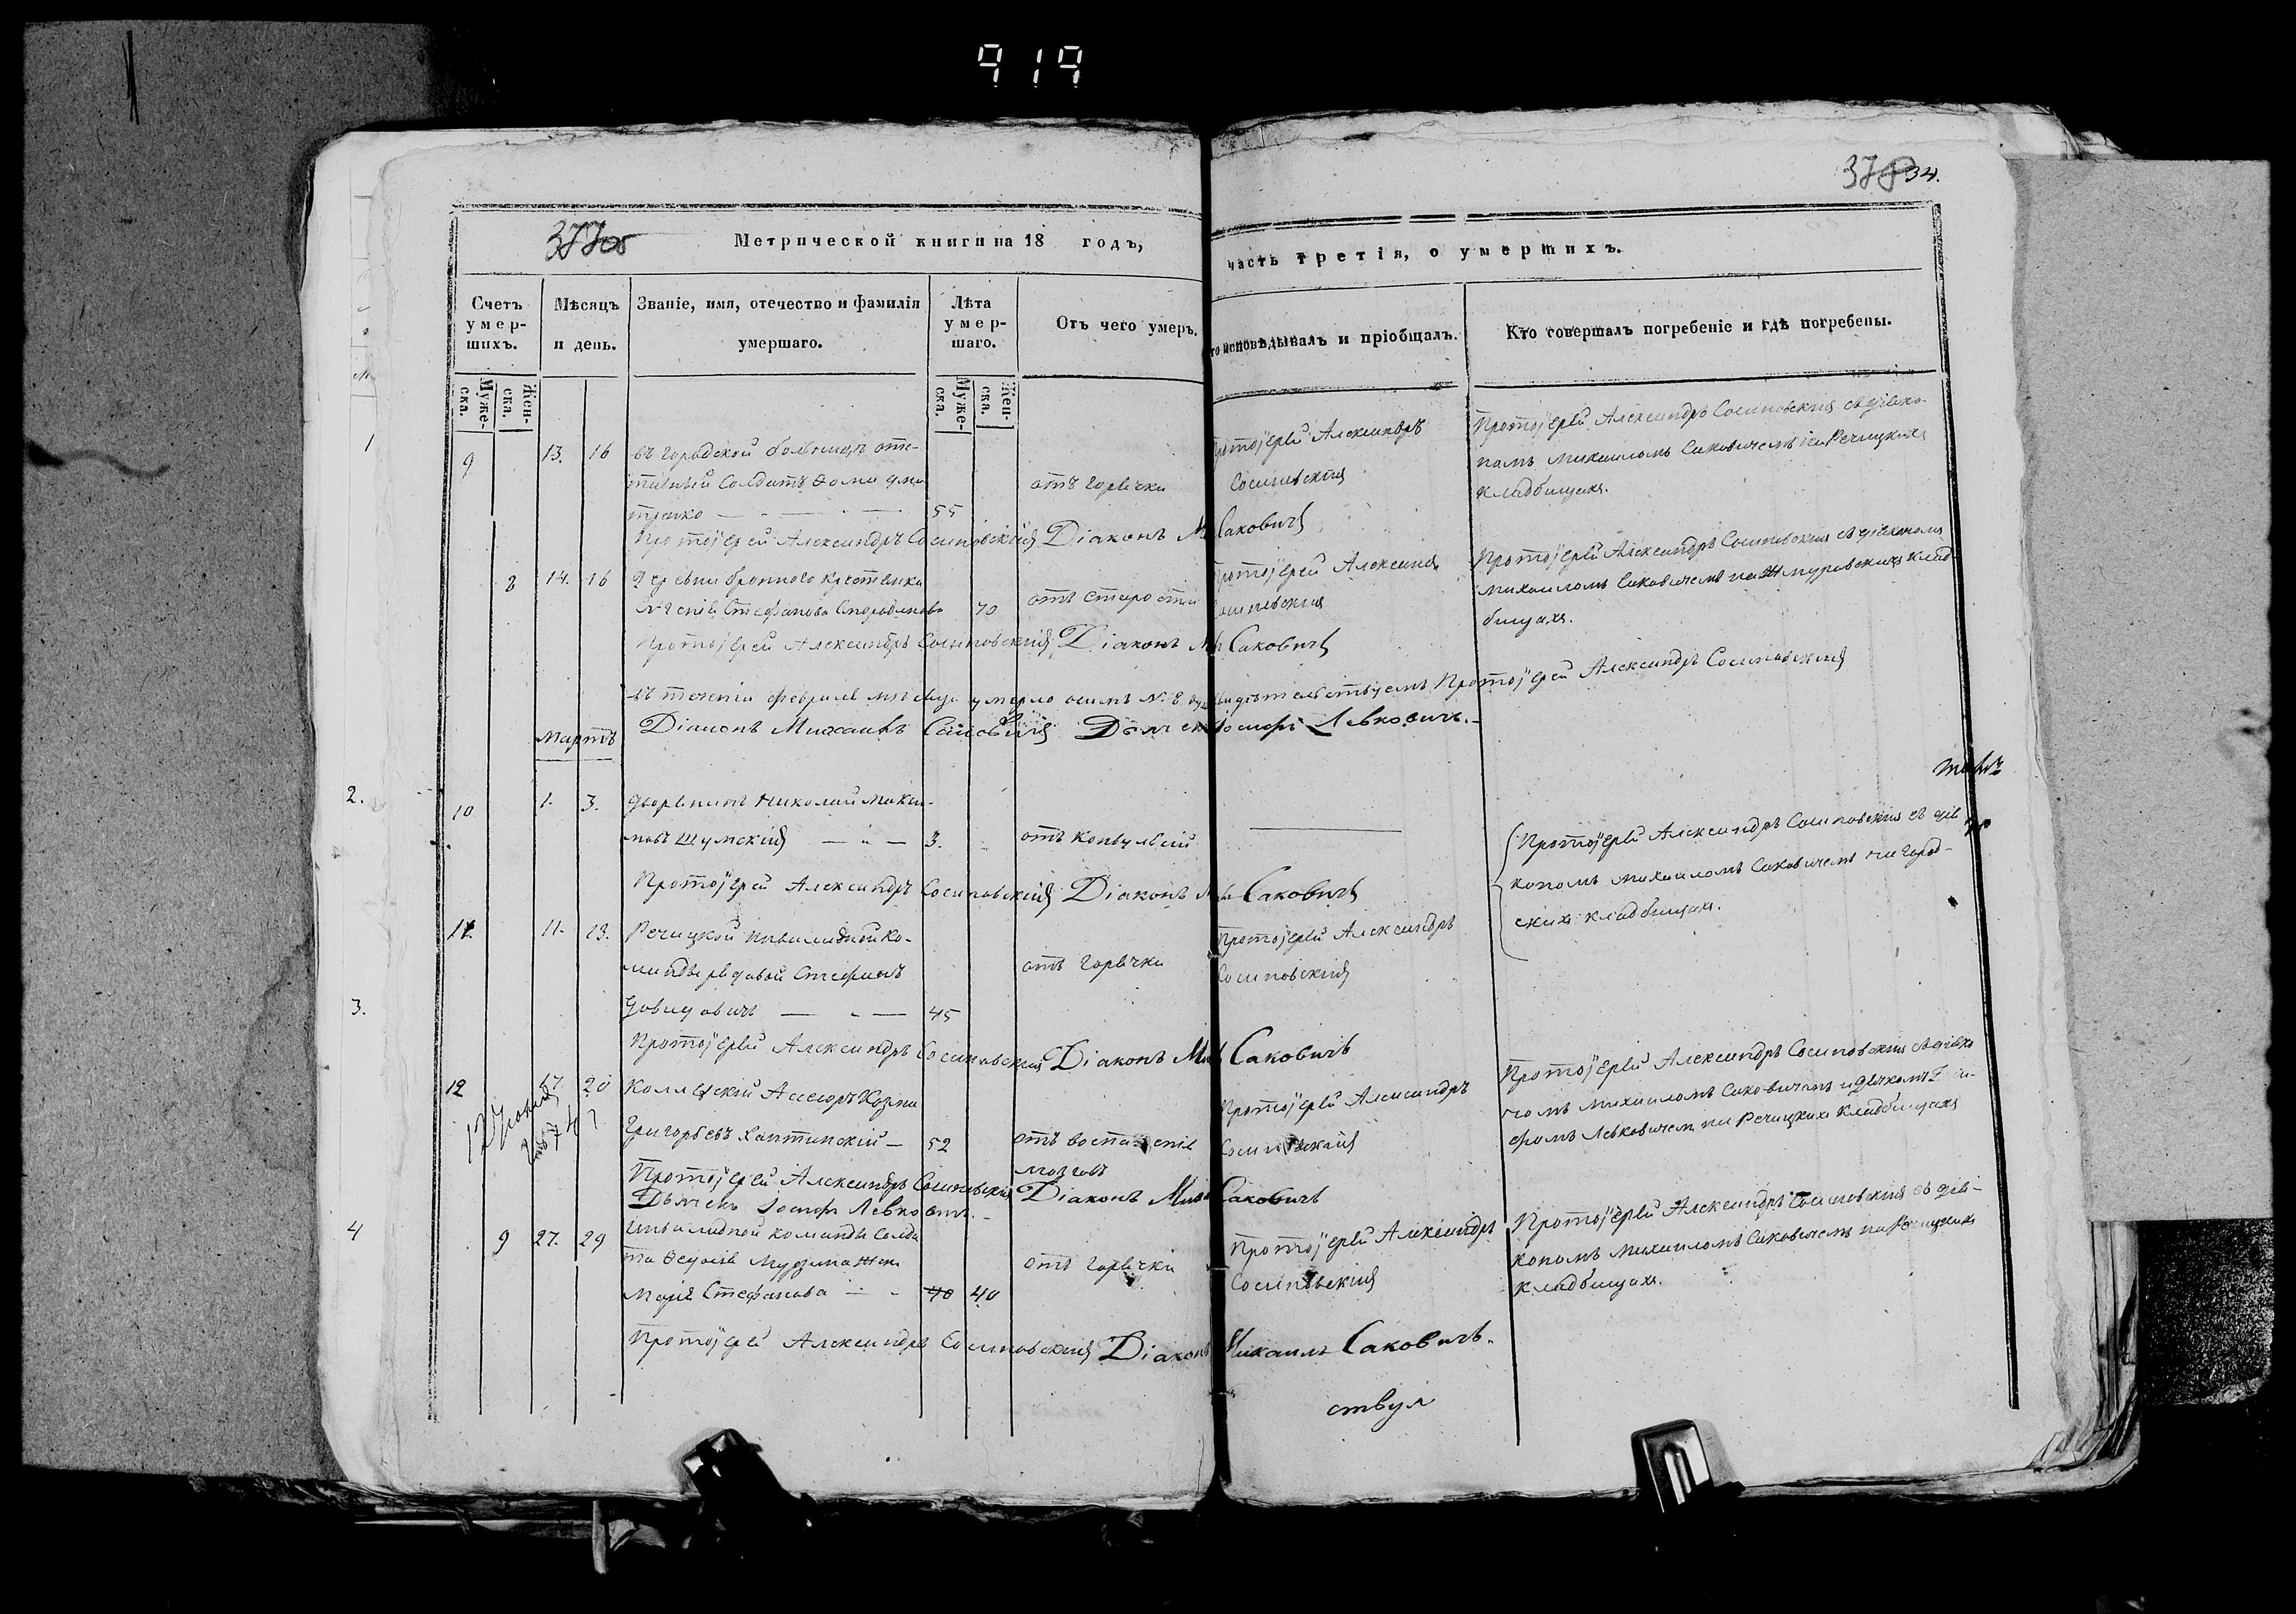 919
378 34.
Метрической книги на 18 годъ, часть третія, о умершихъ.
Счетъ умер-шихъ.
Мѣсяцъ и день.
Званіе, имя, отечество и фамилія умершаго.
Лѣта умер-шаго.
Отъ чего умеръ.
исповѣдывалъ и пріобщалъ.
Кто совершалъ погребеніе и гдѣ погребены.
Муже-ска.
Жен-ска.
Муже-ска.
Жен-ска.
1
9 13. 16 въ городской больницѣ отс-
тавный Солдатъ Фома
55
отъ горячки
Протоіерей Александръ
Сосиновскій
Протоіерей Александръ Сосиновскій съ діяко-
номъ Михаиломъ Саковичемъ на Речицкихъ
кладбищахъ.
Протоіерей Александръ Сосиновскій Діаконъ Саковичъ
8 14. 16 Деревни Бронного крестьянка
Стефанова 70
отъ старости
Протоіерей Александръ
Сосиновскій
Протоіерей Александръ Сосиновскій съ діякономъ
Михаиломъ Саковичемъ на Жмуровскихъ клад-
бищахъ.
Протоіерей Александръ Сосиновскій Діаконъ Саковичъ
въ теченіи февраля мѣсяца умерло осимъ N. 8 душъ свидѣтельствуемъ Протоіерей Александръ Сосиновскій
Діаконъ Михаилъ Саковичъ Дьячекъ Іосифъ Левковичъ.
Мартъ
2.
10 1. 3. Дворянинъ Николай Макси-
мовъ Шумскій 3.
отъ конвульсій
Протоіерей Александръ Сосиновскій съ дія
кономъ Михаиломъ Саковичемъ на город-
скихъ кладбищахъ.
Протоіерей Александръ Сосиновскій Діаконъ Саковичъ
11. 11. 13. Речицкой инвалидной ко-
манды рядовой Стефанъ
Довидовичъ 45
отъ горячки
Протоіерей Александръ
Сосиновскій
3.
Протоіерей Александръ Сосиновскій Діаконъ Мих Саковичъ
12 17. 20 Коллежскій Асесоръ Козма
Григорьевъ Хаптинскій 52
отъ воспаленія
мозговъ
Протоіерей Александръ
Сосиновскій
Протоіерей Александръ Сосиновскій съ діяко
номъ Михаиломъ Саковичемъ и дьячкомъ Іоси-
фомъ Левковичемъ на Речицкихъ кладбищахъ
Протоіерей Александръ Сосиновскій Діаконъ Миха Саковичъ
Дьячекъ Іосифъ Левковичъ.
4
9 27. 29 Инвалидной команды солда
та жена
Марія Стефанова 40 40
отъ горячки
Протоіерей Александръ
Сосиновскій
Протоіерей Александръ Сосиновскій съ дія-
кономъ Михаиломъ Саковичемъ на Речицкихъ
кладбищахъ.
Протоіерей Александръ Сосиновскій Діаконъ Михаилъ Саковичъ.
ствул